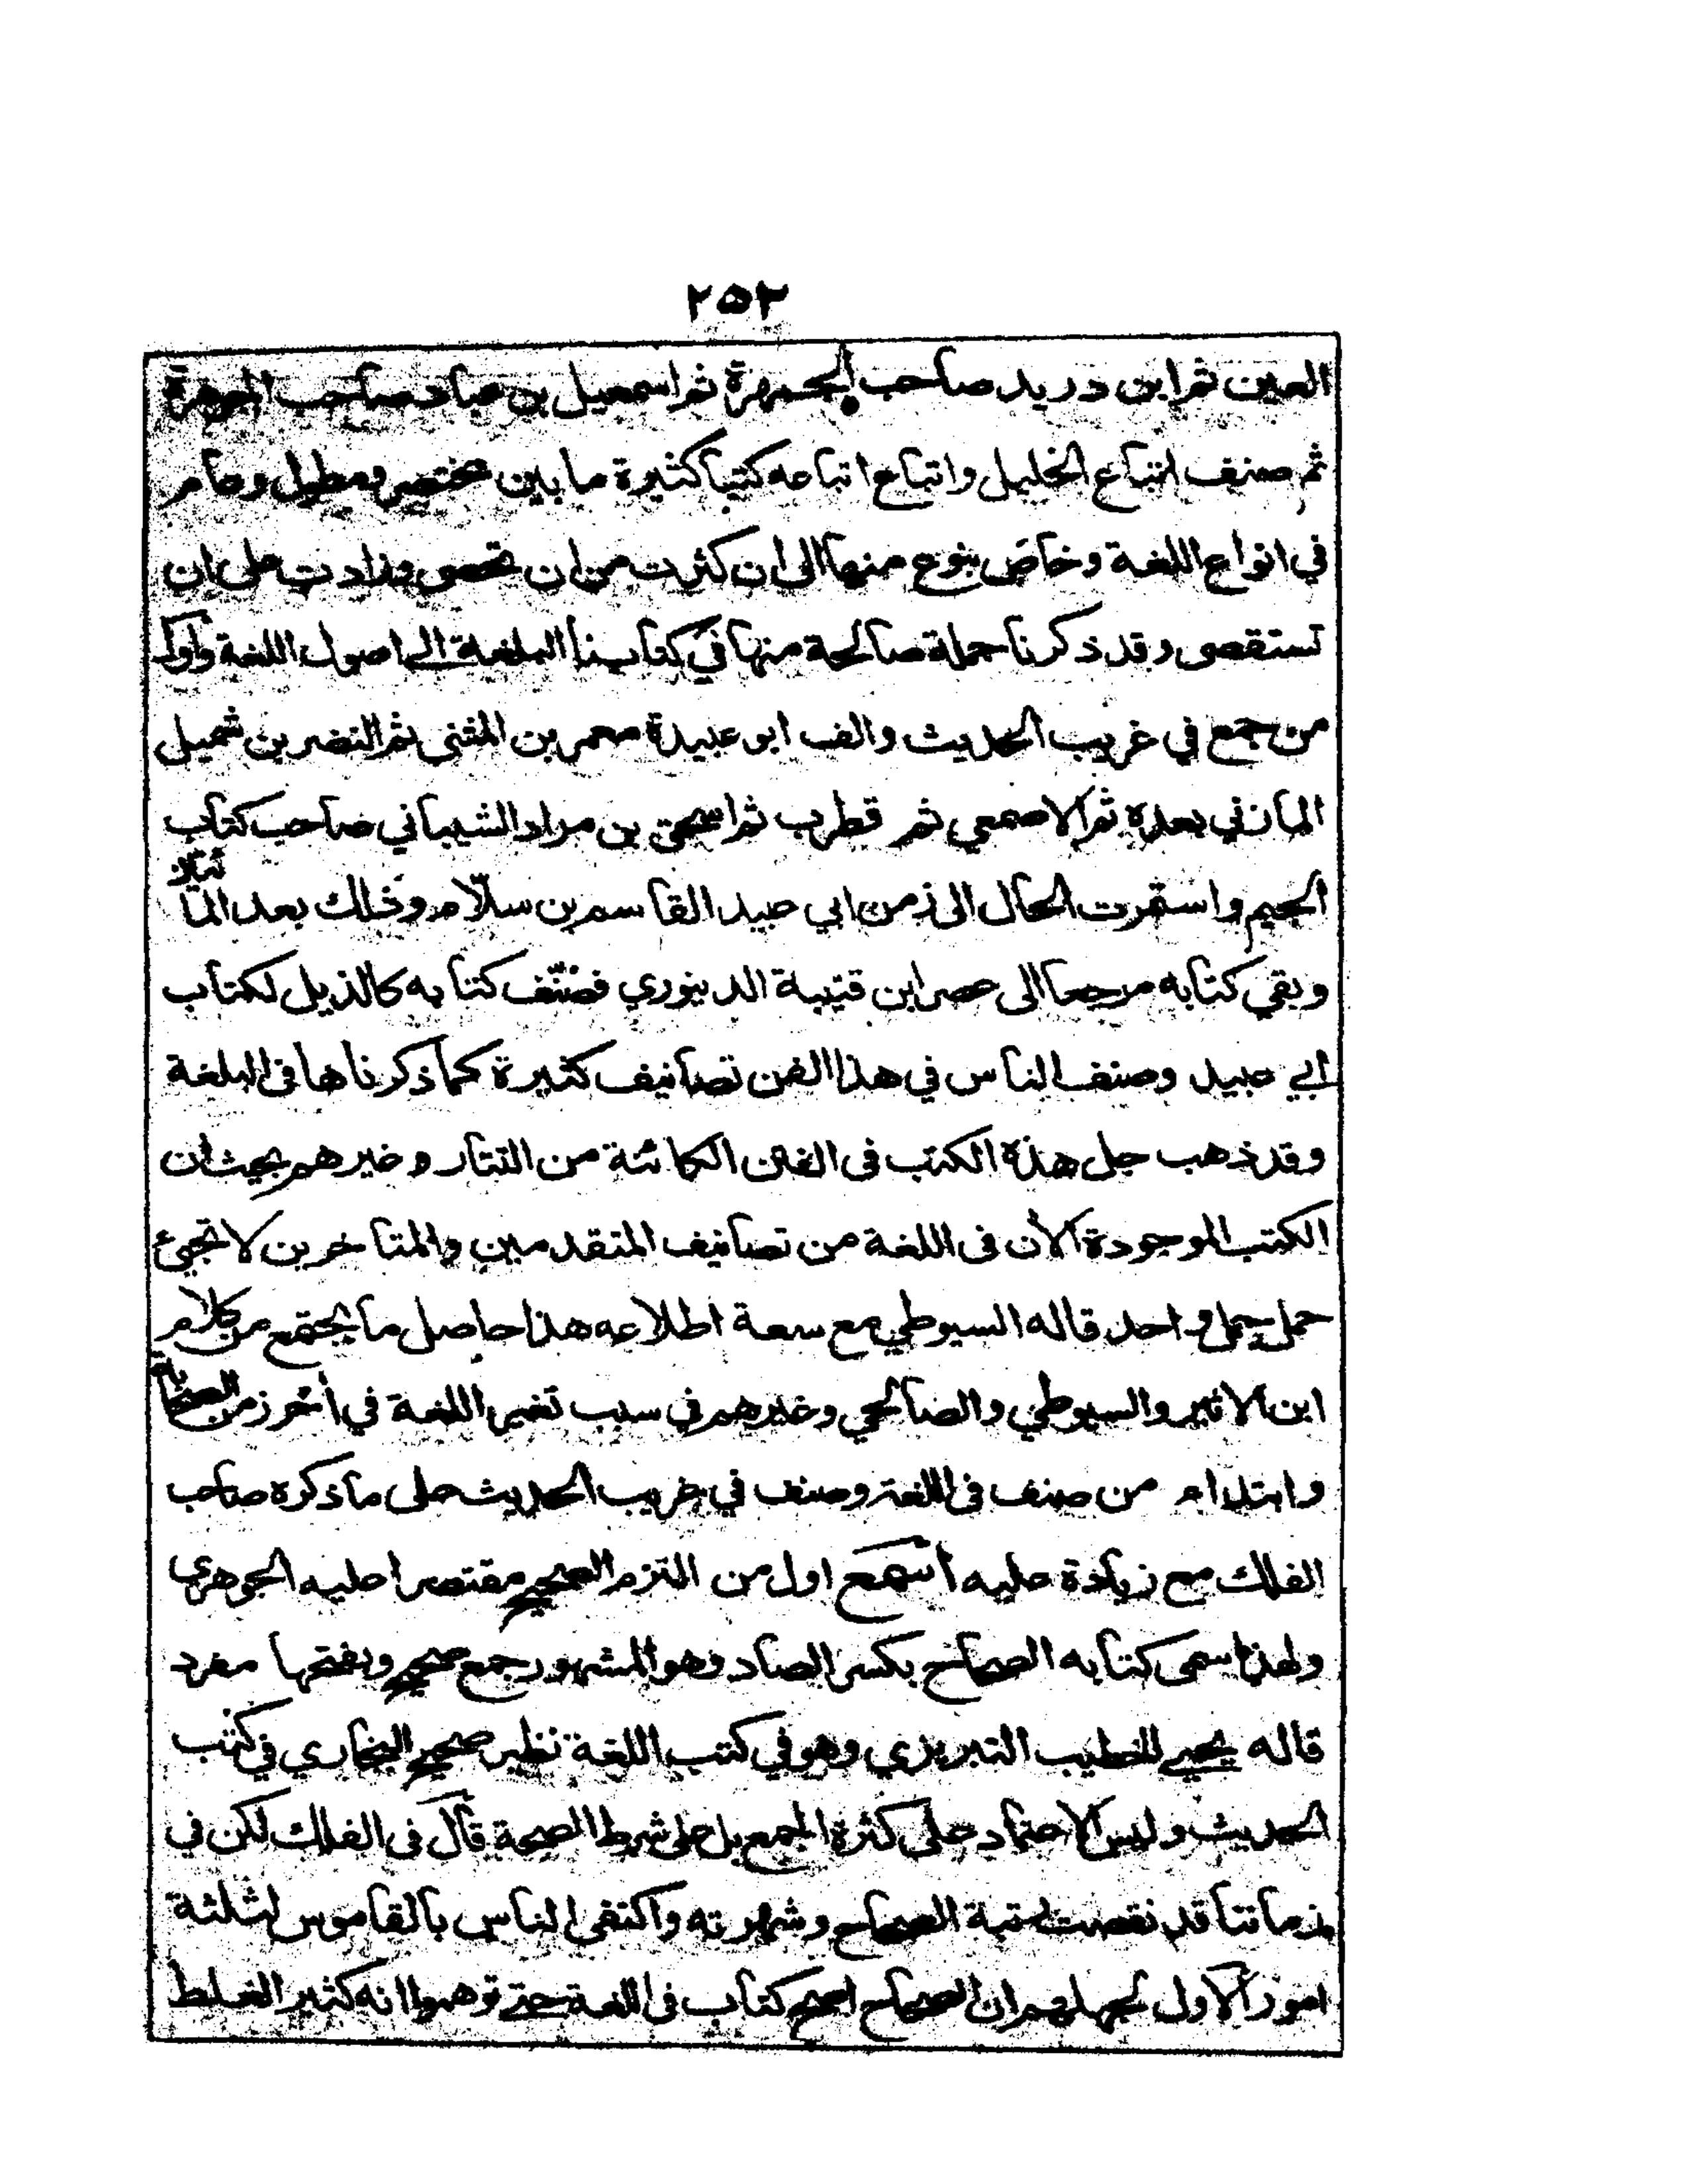 ٢٥٢
العين ثم ابن دريد صاحب الجمهرة ثم اسمعيل بن عباد صاحب الجوهرة
ثم صنف اتباع الخليل واتباع اتباعه كتبا كثيرة ما بين مختصر ومطول وعام
في انواع اللغة وخاص بنوع منها الى ان كثرت من ان تحصى وزادت على ان
تستقصى وقد ذكرنا جملة صالحة منها في كتابنا البلغة الى اصول اللغة واول
من جمع في غريب الحديث والف ابو عبيدة معمر بن المثنى ثم النضر بن شميل
المازني بعده ثم الاصمعي ثم قطرب ثم اسحق بن مراد الشيباني صاحب كتاب
الجيم واستمرت الحال الى زمن ابي عبيد القاسم بن سلّام وذلك بعد المائتين
وبقي كتابه مرجعا الى عصر ابن قتيبة الدينوري فصنّف كتابه كالذيل لكتاب
ابي عبيد وصنف الناس في هذا الفن تصانيف كثيرة كما ذكرناها في البلغة
وقد ذهب جل هذه الكتب في الفتن الكائنة من التتار وغيرهم بحيث ان
الكتب الموجودة الأن في اللغة من تصانيف المتقدمين والمتاخرين لا تجيئ
حمل جمل واحد قاله السيوطي مع سعة اطلاعه هذا حاصل ما يجتمع من كلام
ابن الاثير والسيوطي والصالحي وغيرهم في سبب تغير اللغة في أخر زمن الصحابة
وابتداء من صنف في اللغة وصنف في غريب الحديث على ما ذكره صاحب
الفلك مع زيادة عليه أنتهى اول من التزم الصحيح مقتصرا عليه الجوهري
ولهذا سمى كتابه الصحاح بكسر الصاد وهو المشهور جمع صحيح وبفتحها مفرد
قاله يحيى الخطيب التبريزي وهو في كتب اللغة نظير صحيح البخاري في كتب
الحديث وليس الاعتماد على كثرة الجمع بل على شرط الصحة قال في الفلك لكن في
زماننا قد نقصت رتبة الصحاح وشهرته واكتفى الناس بالقاموس لثلثة
امور الاول لجهلهم ان الصحاح اصح كتاب في اللغة حتى توهموا انه كثير الغلط